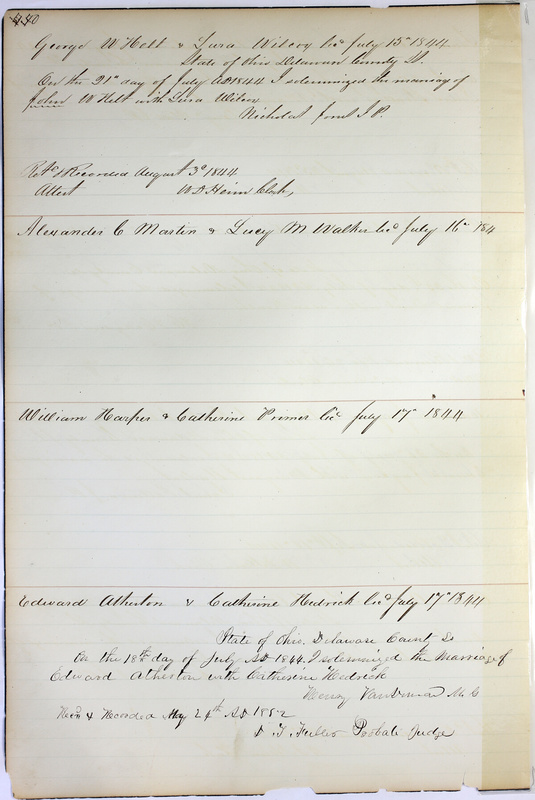 440
George W Helt & Lura Wilcox Lic July 15th 1844
State of Ohio Delaware County Ss.
On the 21st day of July AD 1844 I solemnized the marriag of
John W Helt with Lura Wilcox
Nicholas Jones J.P.
Retd & Recorded August 3d 1844
Attest W D Heim Clerk,
Alexander C Martin & Lucy M Walker Licd July 16th 184
William Harper & Catherine Primer Licd July 17th 1844
Edward Atherton & Catherine Hedrick Licd July 17th 1844
State of Ohio. Delaware Count Ss
On the 18th day of July AD 1844. I solemnized the Marriage of
Edward Atherton with Catherine Hedrick
Henry Vandeman M. G
Recd & Recorded May AD 1852
T Fuller Probate Judge